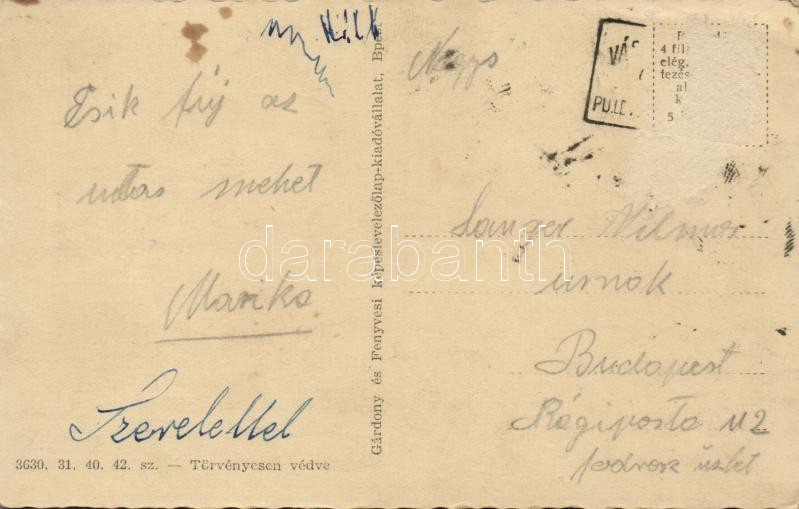 Tsik fúj az
utas mehet
Marika
Szeretettel
3630, 31, 40, 42. sz. — Törvényesen védve
Gárdony és Fenyvesi képeslevelezőlap-kiadóvállalat, Bpest
Nagys
VÁS
PU.LD.
4 fil
elég,
fezés
al
k
5
Langer Vilmos
urnak
Budapest
Régiposta u 2
fodrász üzlet
darabanth